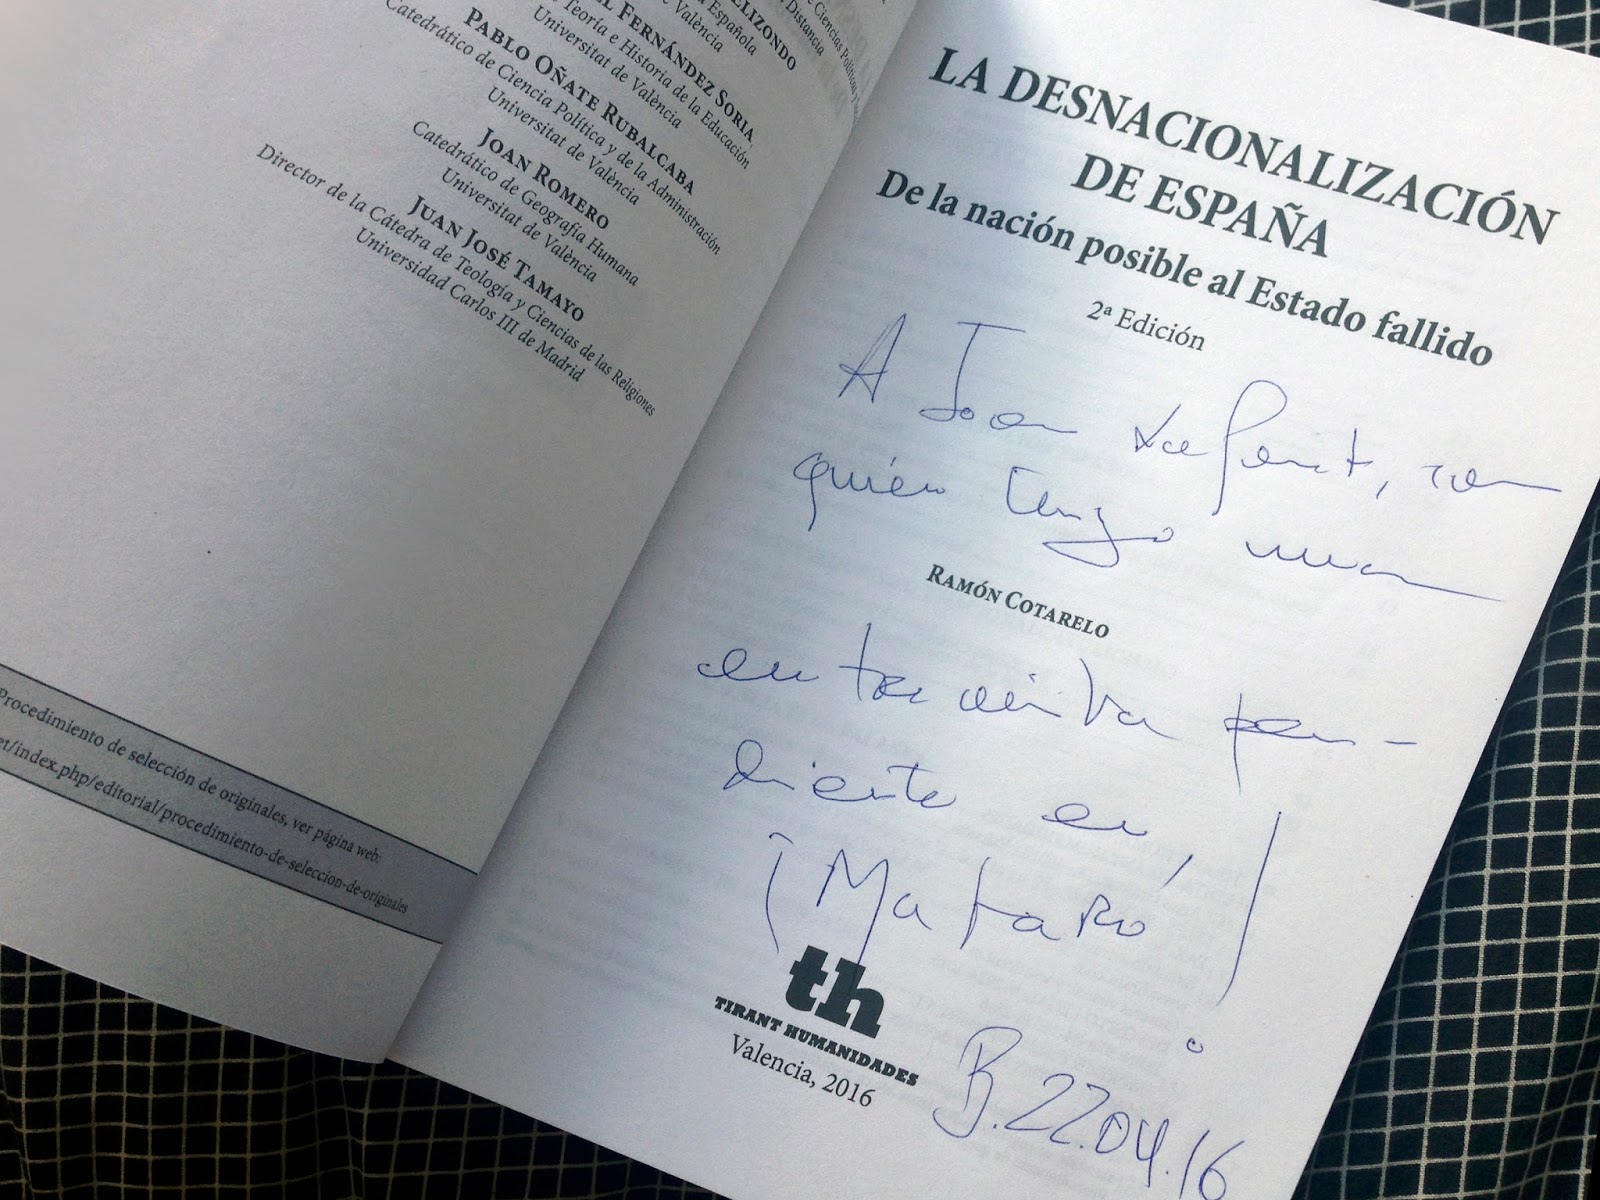 de Ciencias Políticas y
Distancia
ELIZONDO
Española
València
FERNÁNDEZ SORIA
Teoría e Historia de la Educación
Universitat de València
PABLO OÑATE RUBALCABA
Catedrático de Ciencia Política y de la Administración
Universitat de València
JOAN ROMERO
Catedrático de Geografía Humana
Universitat de València
JUAN JOSÉ TAMAYO
Director de la Cátedra de Teología y Ciencias de las Religiones
Universidad Carlos III de Madrid
Procedimiento de selección de originales, ver página web:
et/index.php/editorial/procedimiento-de-seleccion-de-originales
LA DESNACIONALIZACIÓN
DE ESPAÑA
De la nación posible al Estado fallido
2ª Edición
A Joan, con
quien tengo una
RAMÓN COTARELO
entrevista pen-
diente en
¡Mataró!
th
TIRANT HUMANIDADES
Valencia, 2016
B. 22.04.16